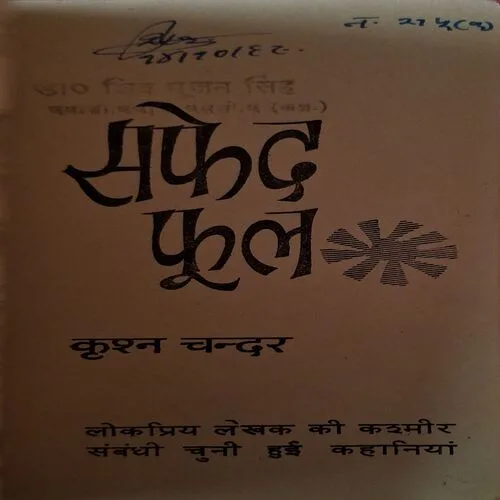 न. २१५(१)
डा० शिव पूजन सिंह
सफेद
फूल
कृश्न चन्दर
लोकप्रिय लेखक की कश्मीर
संबंधी चुनी हुई कहानियां